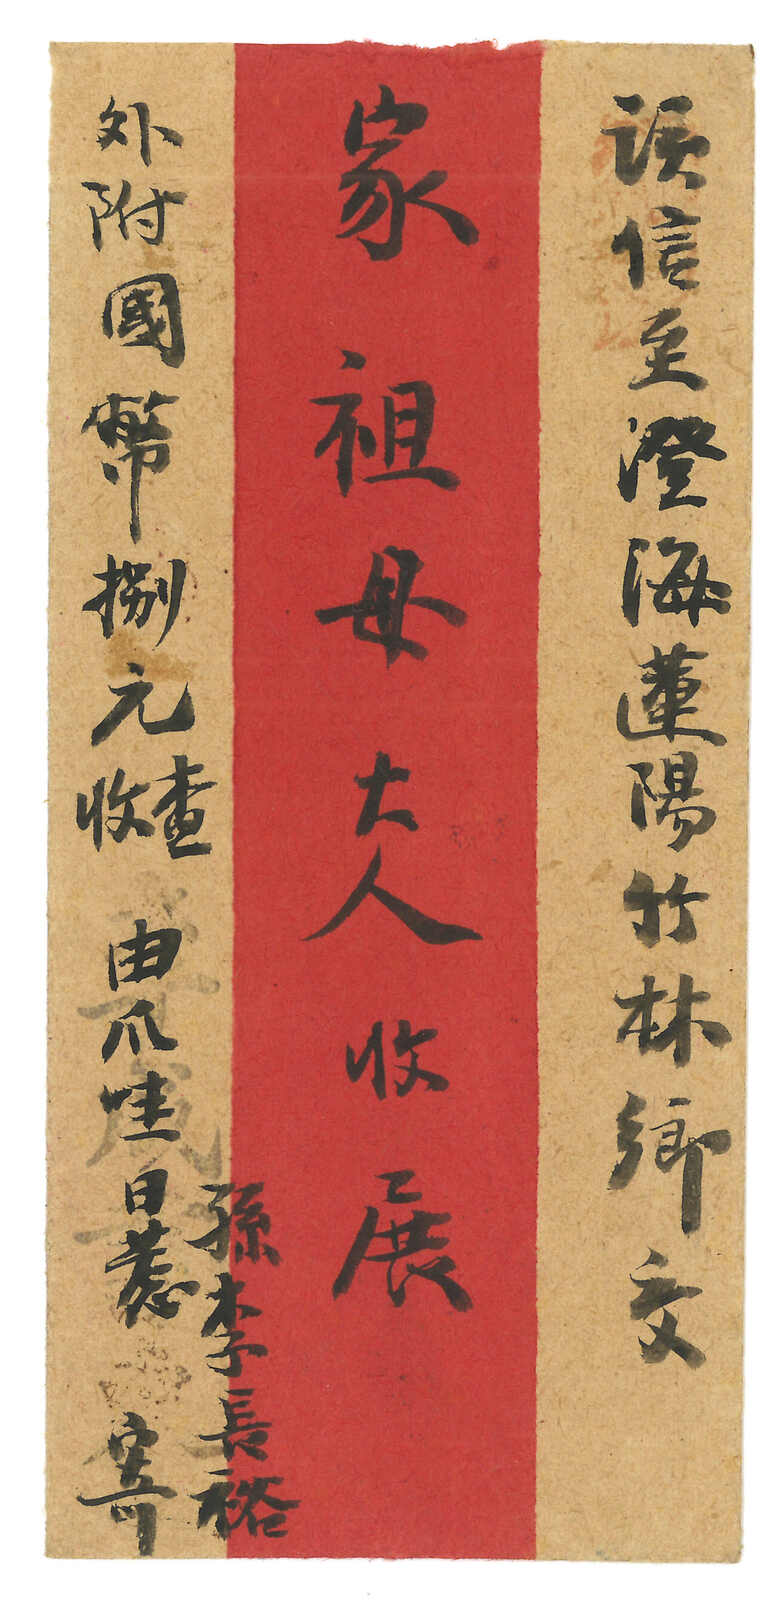 該信至澄海蓮陽竹林鄉交
家祖母大人收展
外附國幣捌元查收
由爪哇日惹
孫李長裕
寄